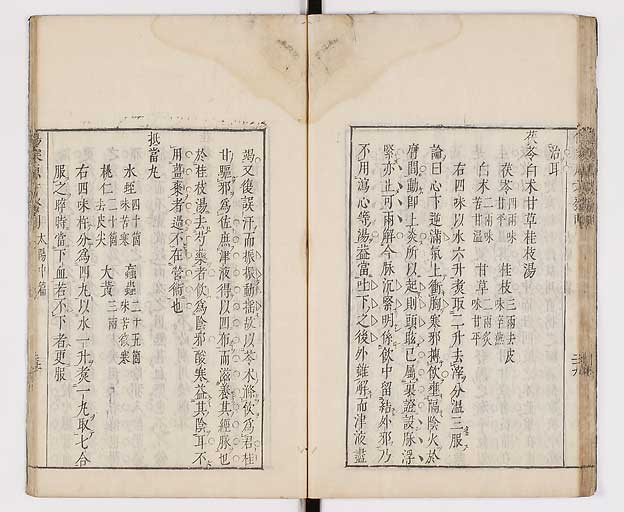 治耳
茯苓白朮甘草桂枝湯
茯苓 四兩味甘平 桂枝 三兩去皮味辛熱
白朮 二兩味苦甘溫 甘草 二兩炙味甘平
右四味以水六升煑取二升去滓分溫三服
論曰心下逆滿氣上衝胸寒邪搏飲壅膈陰火於
膺間動即上炎所以起則頭眩已屬裏證設脉浮
緊亦止可兩解今脉沉緊明係飲中留結外邪乃
不用瀉心等湯益當吐下之後外雖解而津液盡
竭又復誤汗而振振動搖故以苓朮滌飲爲君桂
甘驅邪爲佐庶津液得以四布而滋養其經脉也
於桂枝湯去芍藥者飲爲陰邪酸寒益其陰耳不
用薑棗者過不在營衛也
抵當丸
水蛭 四十箇味苦寒 蝱蟲 二十五箇味苦微寒
桃仁 二十箇去皮尖 大黃 三兩
右四味杵分爲四丸以水一升煑一丸取七合
服之晬時當下血若不下者更服
太陽中篇